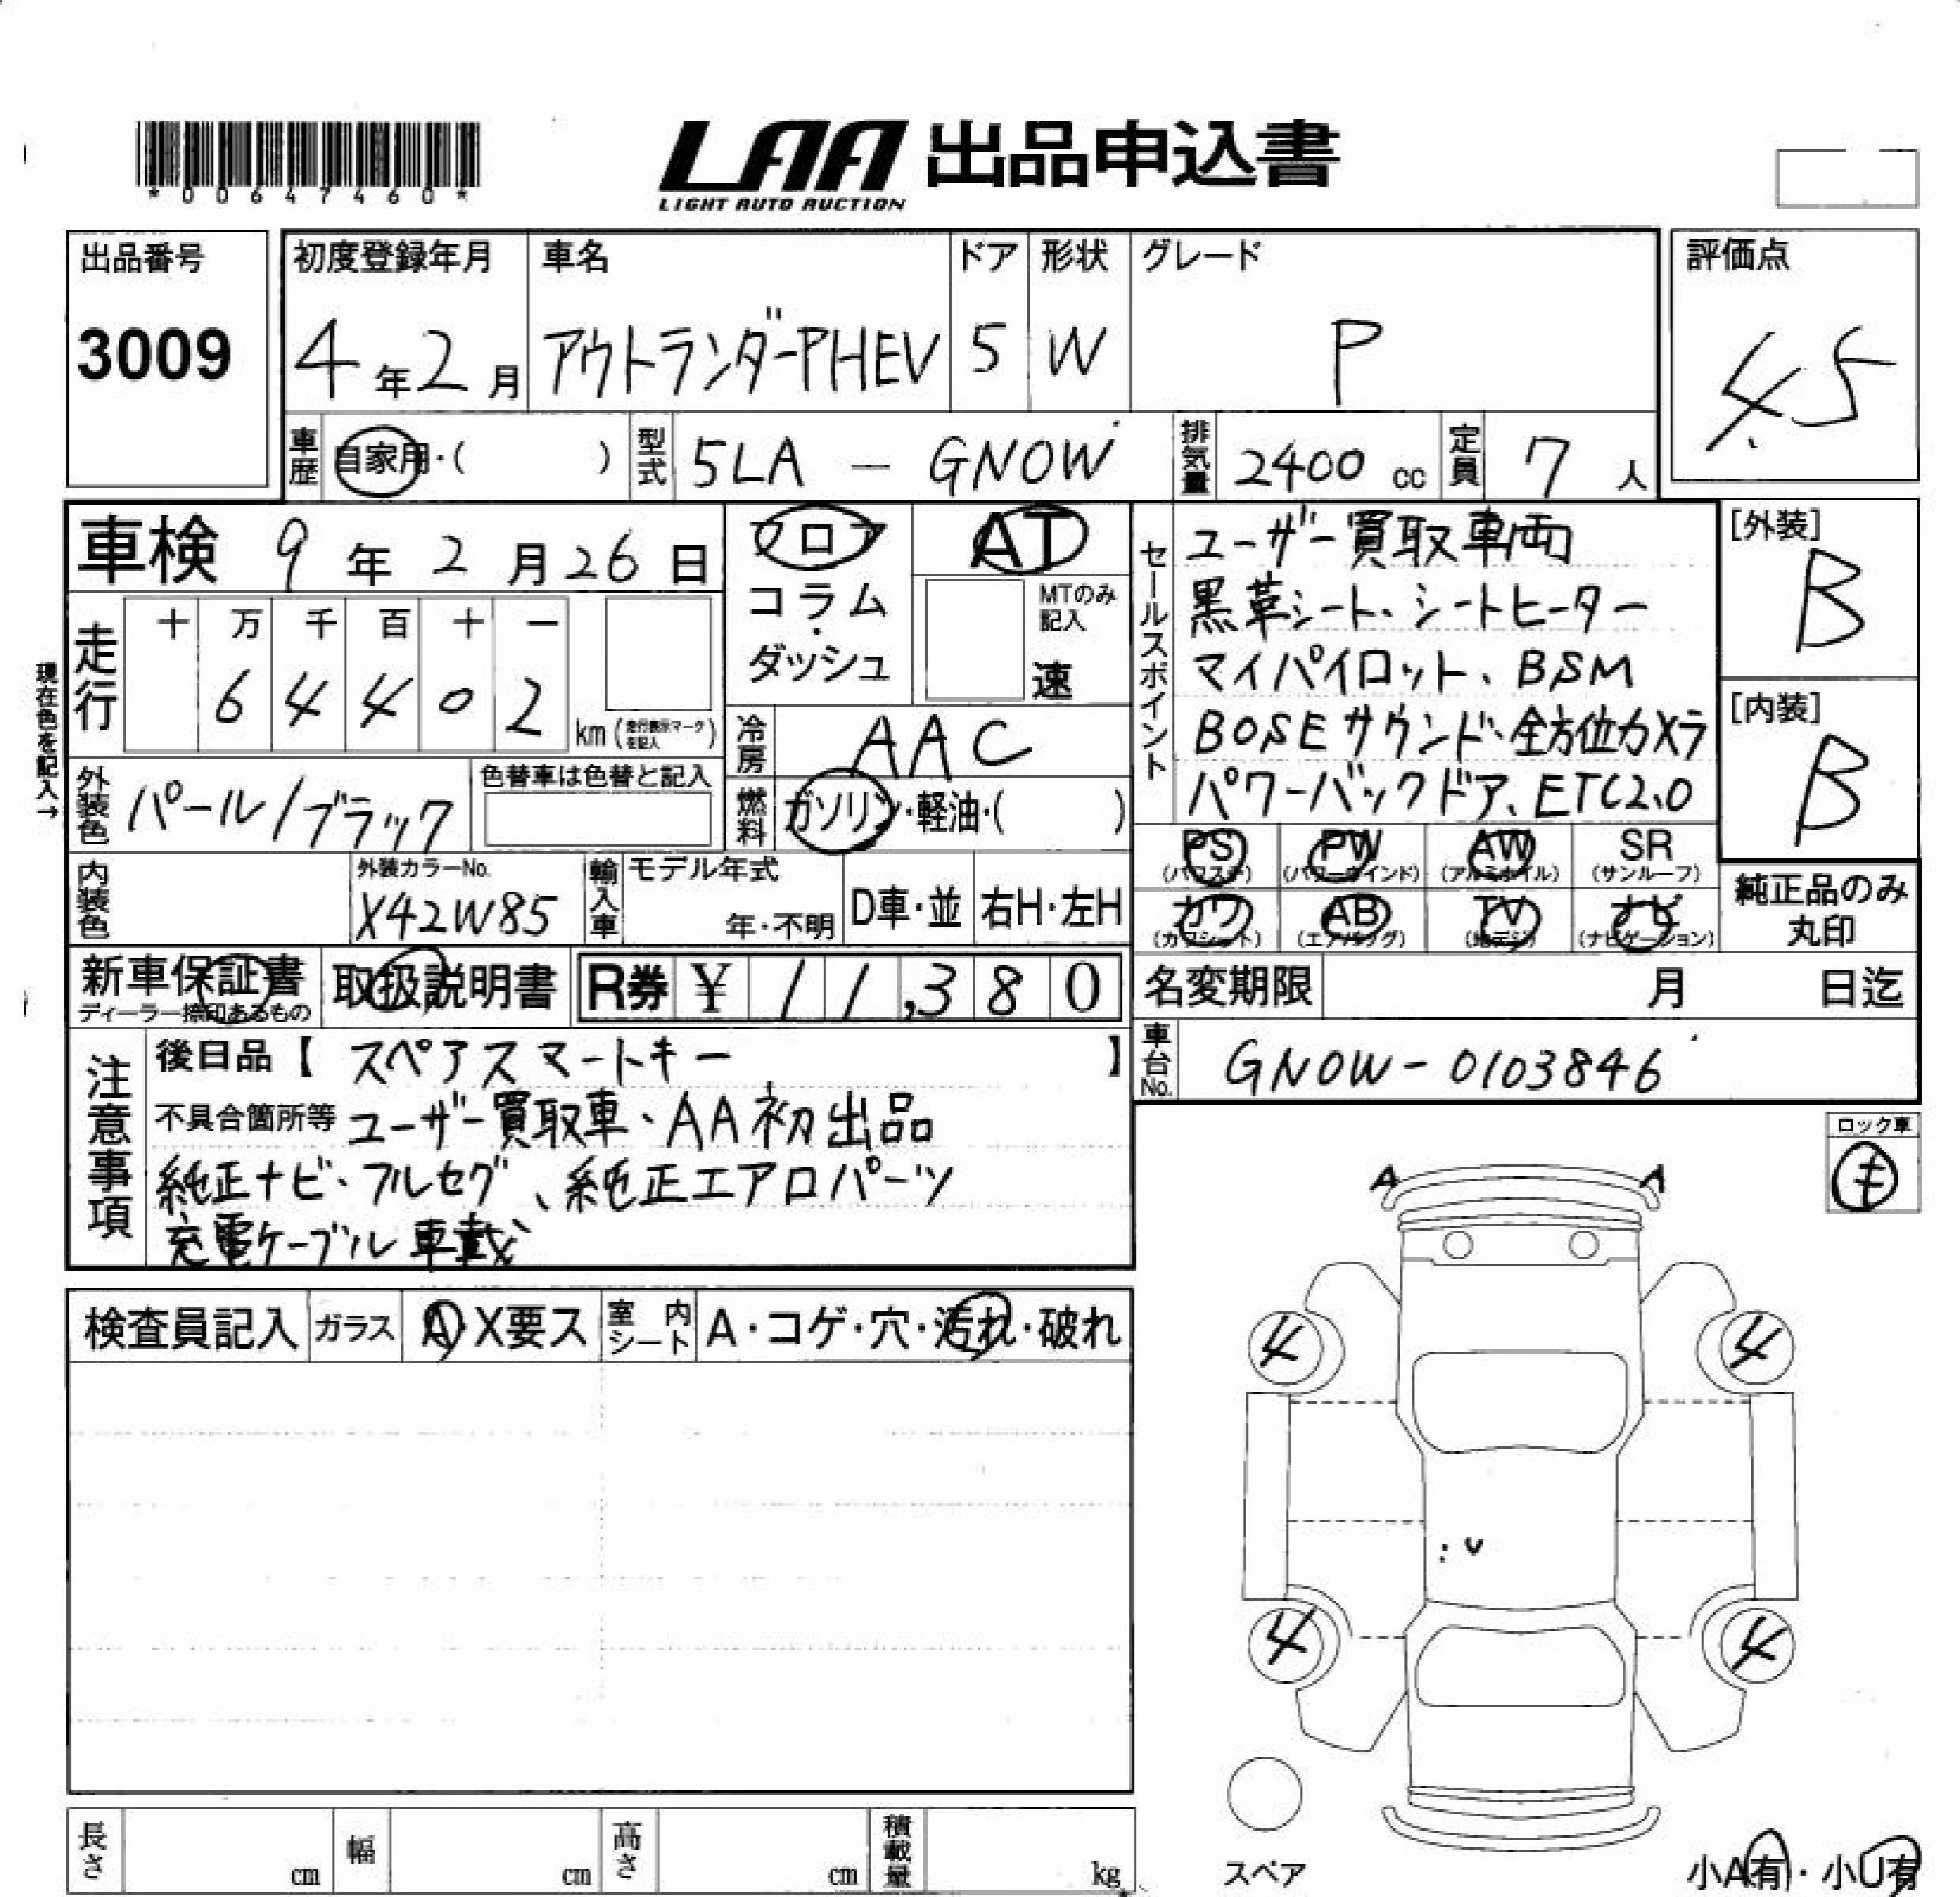 *00647460*
LAA 出品申込書
LIGHT AUTO AUCTION
出品番号
3009
初度登録年月
4年2月
車名
アウトランダーPHEV
ドア
5
形状
W
グレード
P
評価点
4.5
車歴
自家用・( )
型式
5LA - GN0W
排気量
2400 cc
定員
7 人
車検 9年2月26日
フロア
コラム
・
ダッシュ
AT
MTのみ
記入
速
セールスポイント
ユーザー買取車両
黒革シート、シートヒーター
マイパイロット、BSM
BOSEサウンド、全方位カメラ
パワーバックドア、ETC2.0
[外装]
B
[内装]
B
現在色を記入→
走行
十 万 千 百 十 一
6 4 4 0 2
km(走行表示マークを記入)
冷房
AAC
外装色
パール/ブラック
色替車は色替と記入
燃料
ガソリン・軽油・( )
内装色
外装カラーNo.
X42W85
輸入車
モデル年式
年・不明
D車・並
右H・左H
PS
(パワステ)
PW
(パワーウインド)
AW
(アルミホイル)
SR
(サンルーフ)
カワ
(カワシート)
AB
(エアバッグ)
TV
(地デジ)
ナビ
(ナビゲーション)
純正品のみ
丸印
新車保証書
ディーラー捺印あるもの
取扱説明書
R券 ¥ 11,380
名変期限 月 日迄
車台No.
GN0W-0103846
注意事項
後日品【 スペアスマートキー 】
不具合箇所等 ユーザー買取車、AA初出品
純正ナビ、フルセグ、純正エアロパーツ
充電ケーブル車載
ロック車
キ
A A
検査員記入
ガラス
A・X要ス
室内シート
A・コゲ・穴・汚れ・破れ
4 4
4 4
スペア
小A有・小U有
長さ cm
幅 cm
高さ cm
積載量 kg